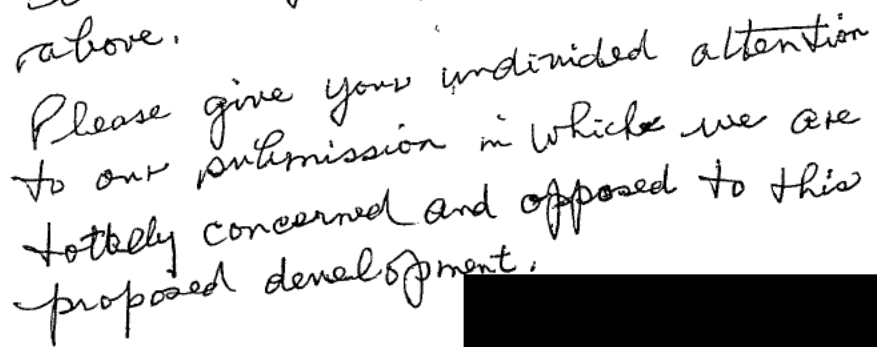 above.
Please give your undivided attention
to our submission in which we are
totally concerned and opposed to this
proposed development.